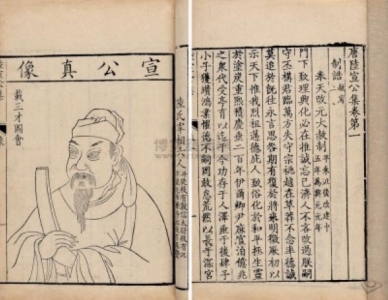 唐陸宣公集卷第一
制誥 赦宥上
奉天改元大赦制 平朱泚後改建中五年為興元元年
門下致理興化必在推誠忘己濟人不吝改過朕嗣
守丕構君臨萬方失守宗祧越在草莽不念率德誠
莫追於既往永言思咎期有復於將來明徵厥初以
示天下惟我烈祖邁德庇人致俗化於和平拯生靈
於塗炭重熙積慶垂二百年伊爾卿尹庶官洎億兆
之衆代受亭育以迄于今功存于人澤垂于後肆予
小子獲纘鴻業懼德不嗣罔敢怠荒然以長于深宮
宣公真像
陸氏宰相六人
載三才圖會